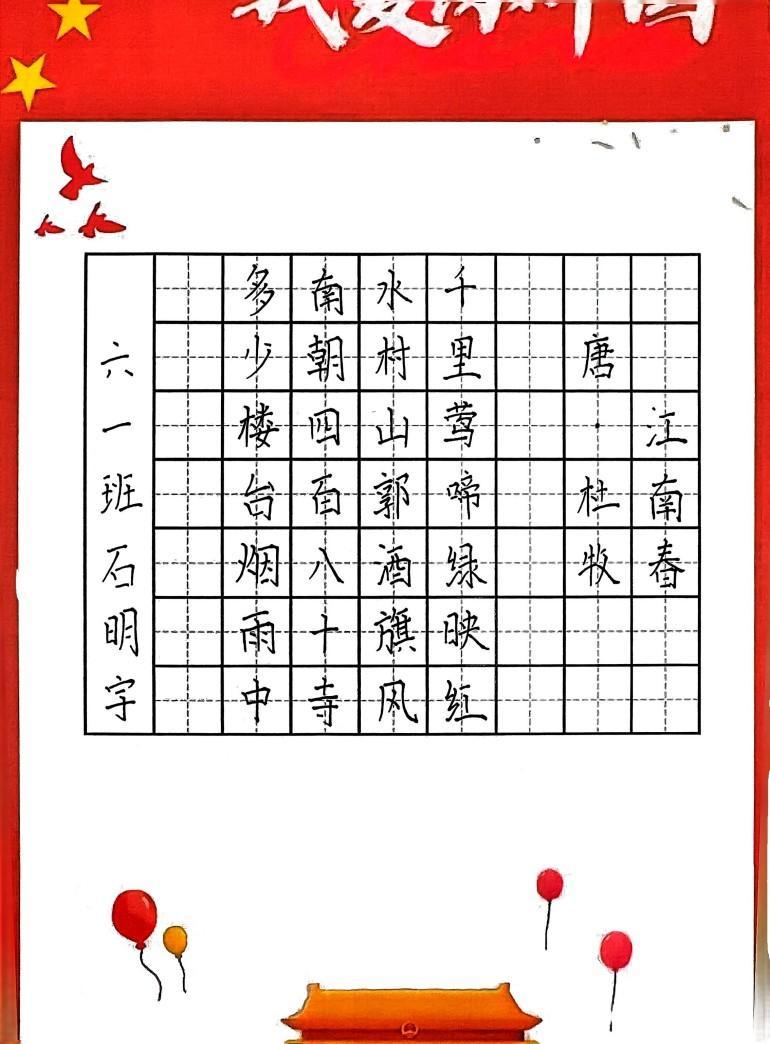 江南春
唐·杜牧
千里莺啼绿映红
水村山郭酒旗风
南朝四百八十寺
多少楼台烟雨中
六一班石明字